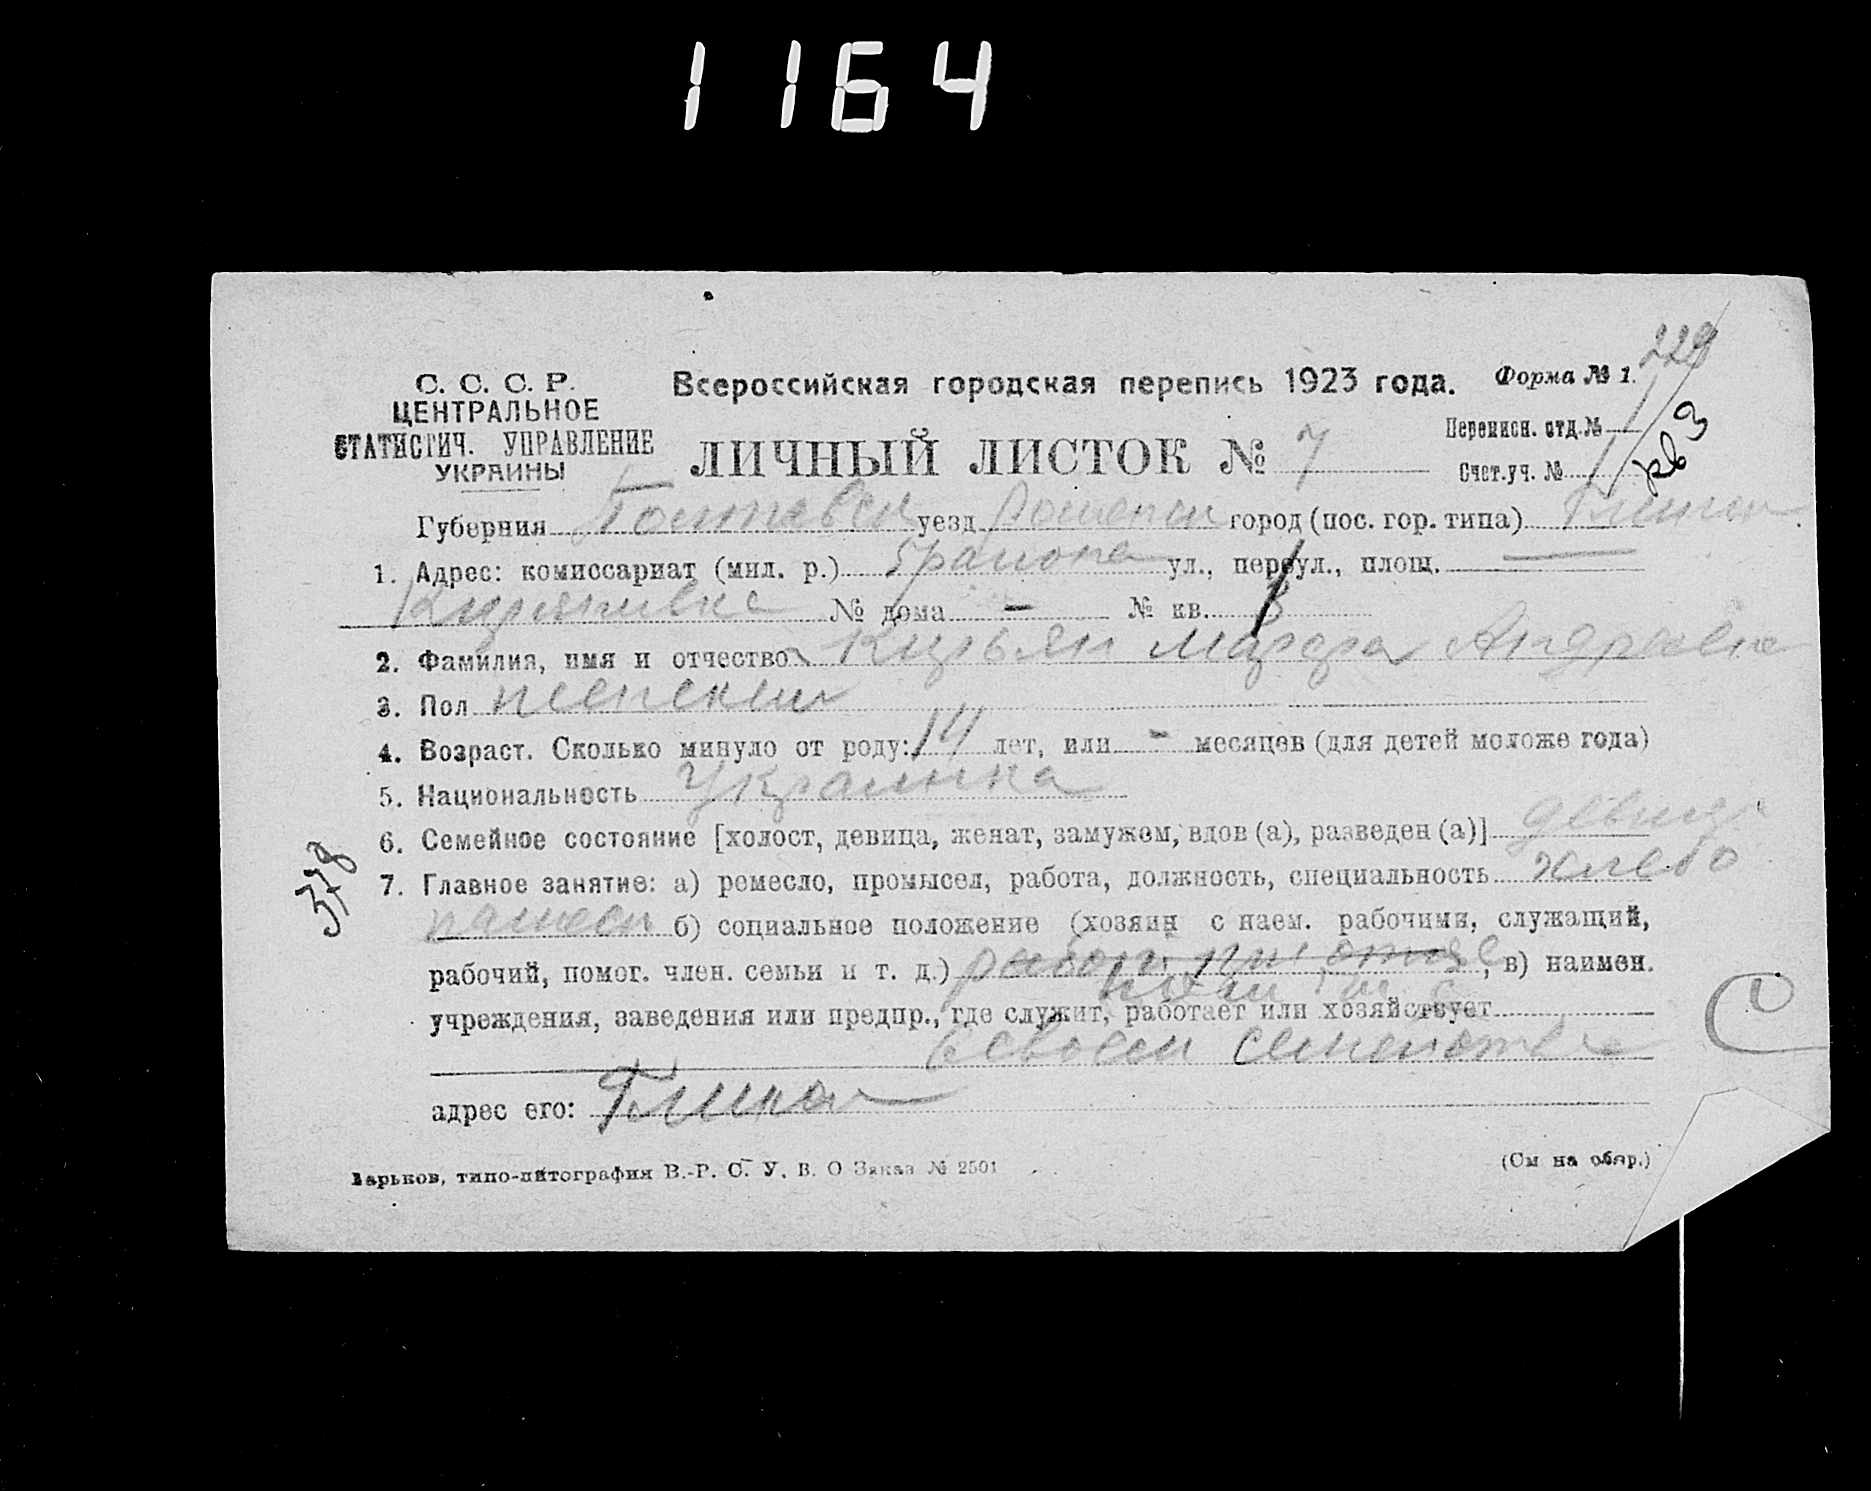 1164
С. С. С. Р.
ЦЕНТРАЛЬНОЕ
СТАТИСТИЧ. УПРАВЛЕНИЕ
УКРАИНЫ
Всероссийская городская перепись 1923 года. Форма № 1.
229
Переписн. отд. № 1
ЛИЧНЫЙ ЛИСТОК № 7
Счет. уч. № 1
кв 3
Губерния Полтавск уезд Роменск город (пос. гор. типа) Глинск
1. Адрес: комиссариат (мил. р.) 5 района ул., переул., площ. —
№ дома - № кв.
2. Фамилия, имя и отчество Кирьян Марфа Андреевна
3. Пол женский
4. Возраст. Сколько минуло от роду: 14 лет, или - месяцев (для детей моложе года)
5. Национальность Украинка
6. Семейное состояние [холост, девица, женат, замужем, вдов (а), разведен (а)] девица
378
7. Главное занятие: а) ремесло, промысел, работа, должность, специальность хлебо
пашест б) социальное положение (хозяин с наем. рабочими, служащий,
рабочий, помог. член. семьи и т. д.) , в) наимен.
учреждения, заведения или предпр., где служит, работает или хозяйствует
в своем семействе
С
адрес его: Глинск
Харьков, типо-литография В.-Р. С. У. В. О Заказ № 2501
(См на обор.)